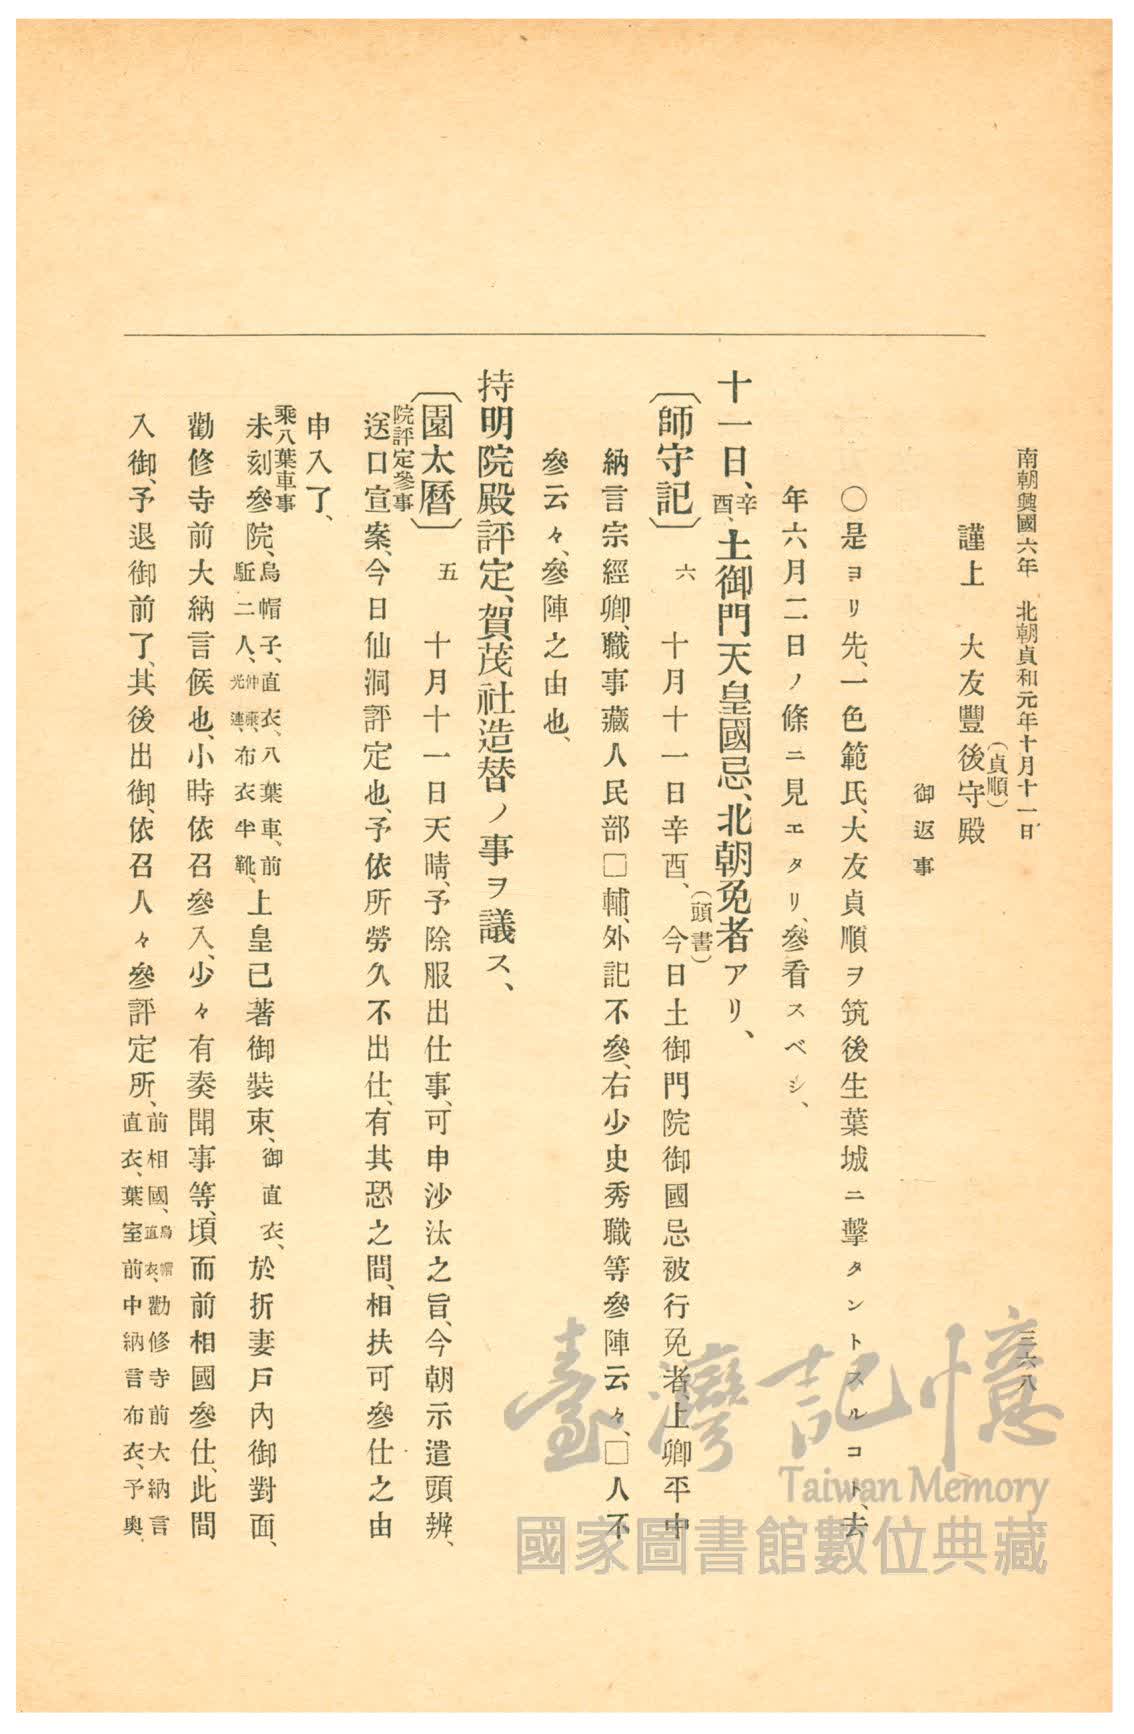 南朝興國六年 北朝貞和元年十月十一日
三六八
謹上 大友豐後守殿
(貞順)
御返事
〇是ヨリ先、一色範氏、大友貞順ヲ筑後生葉城ニ擊タントスルコト、去
年六月二日ノ條ニ見エタリ、參看スベシ、
十一日、辛酉、土御門天皇國忌、北朝免者アリ、
〔師守記〕 六 十月十一日辛酉、(頭書)今日土御門院御國忌被行免者、上卿平中
納言宗經卿、職事藏人民部□輔、外記不參、右少史秀職等參陣云々、□人不
參云々、參陣之由也、
持明院殿評定、賀茂社造替ノ事ヲ議ス、
〔園太曆〕 五 十月十一日天晴、予除服出仕事、可申沙汰之旨、今朝示遣頭辨、
院評定參事
送口宣案、今日仙洞評定也、予依所勞久不出仕、有其恐之間、相扶可參仕之由
申入了、
乘八葉車事
未刻參院、烏帽子、直衣、八葉車、前駈二人、仲康、光連、布衣半靴、上皇已著御裝束、御直衣、於折妻戶內御對面、
勸修寺前大納言候也、小時依召參入、少々有奏聞事等、頃而前相國參仕、此間
入御、予退御前了、其後出御、依召人々參評定所、前相國、烏帽直衣、勸修寺前大納言直衣、葉室前中納言布衣、予奧、
臺灣記憶
Taiwan Memory
國家圖書館數位典藏